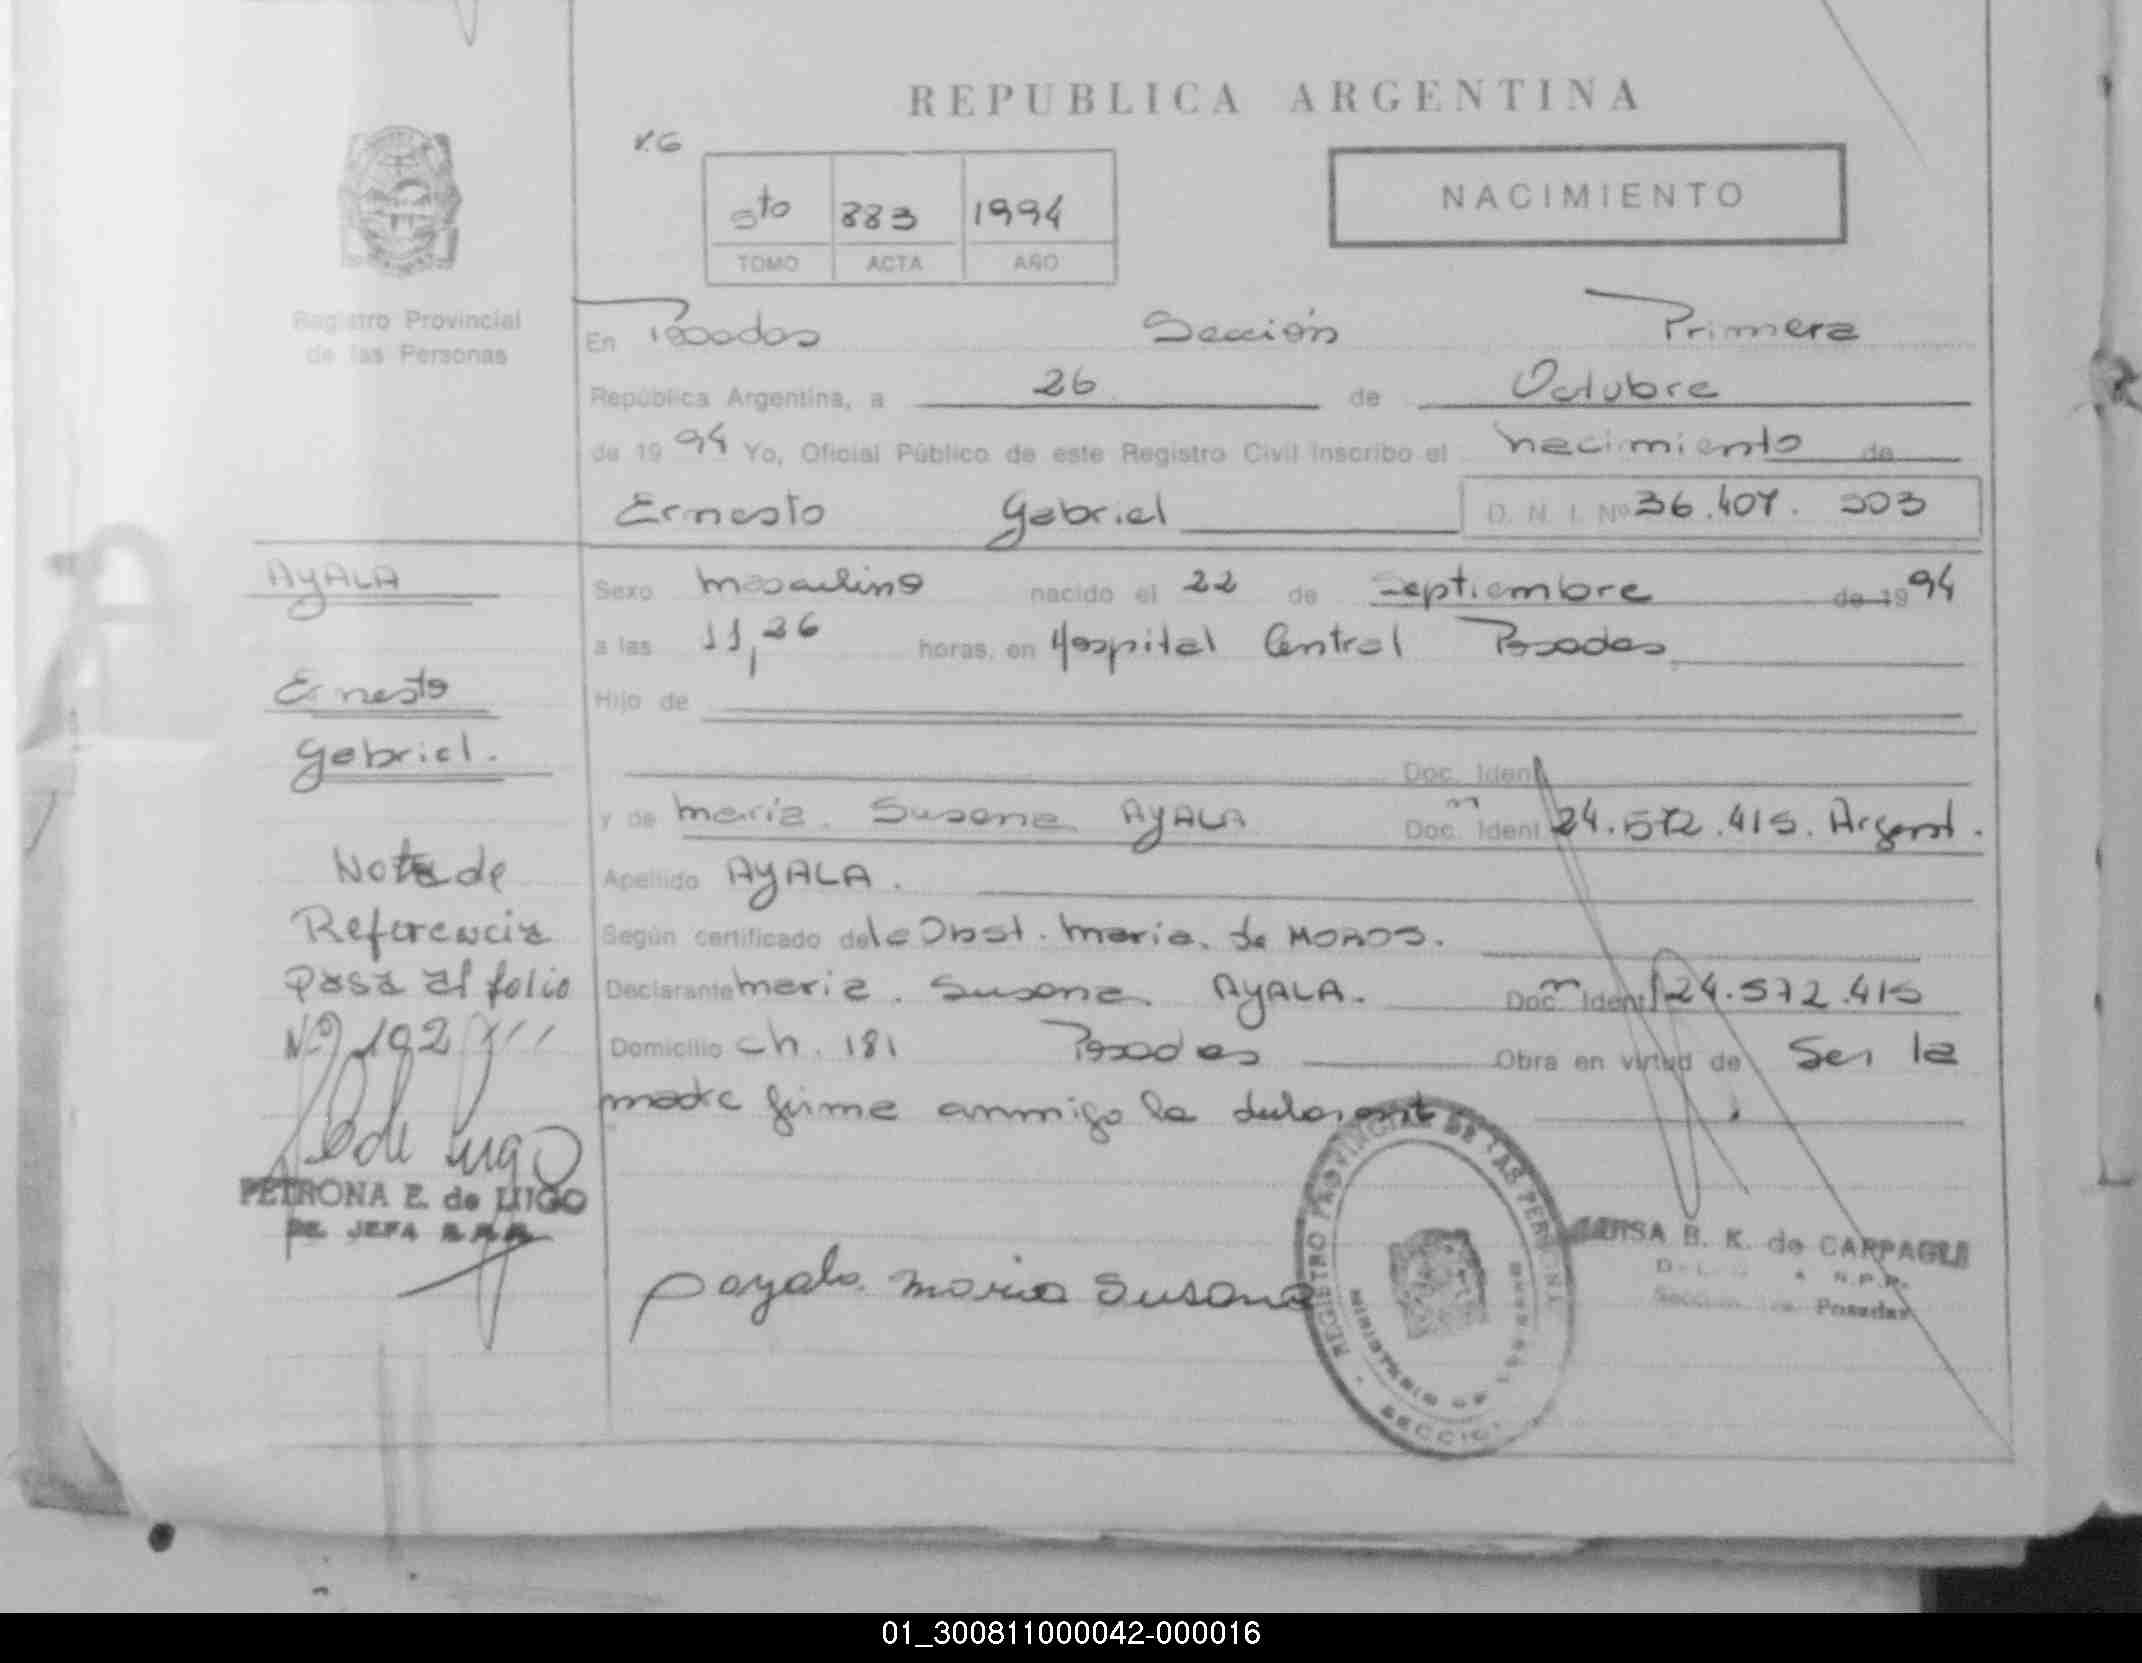 REPUBLICA ARGENTINA
5to 883 1994
TOMO ACTA AÑO
NACIMIENTO
Registro Provincial
de las Personas
En Posadas Sección Primera
República Argentina, a 26 de Octubre
de 1994 Yo, Oficial Público de este Registro Civil inscribo el nacimiento de
Ernesto Gabriel D. N. I. Nº 36.407.503
AYALA
Ernesto
Gabriel.
Sexo masculino nacido el 22 de Septiembre de 1994
a las 11,36 horas, en Hospital Central Posadas
Hijo de
Doc. Ident
y de maria Susana AYALA Doc. Ident 24.572.415. Argent.
Apellido AYALA.
Según certificado de la Obst. maria de MOROS.
Declarante maria Susana AYALA. Doc. Ident 24.572.415
Domicilio ch. 181 Posadas Obra en virtud de Ser la
madre firma conmigo la declarante
Nota de
Referencia
pasa al folio
Nº 192
PETRONA E. de LUGO
JEFA
ayala maria Susana
REGISTRO PROVINCIAL DE LAS PERSONAS
MINISTERIO DE
SECCION
LUISA B. K. de CARPAGLI
R.P.P.
Posadas
01_300811000042-000016